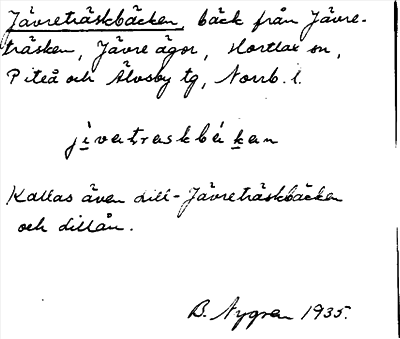 Jävreträskbäcken, bäck från Jävre-
träsken, Jävre ägor, Hortlax sn,
Piteå och Älvsby tg, Norrb. l.
Kallas även Lill-Jävreträskbäcken
och Lillån.
B. Nygren 1935.